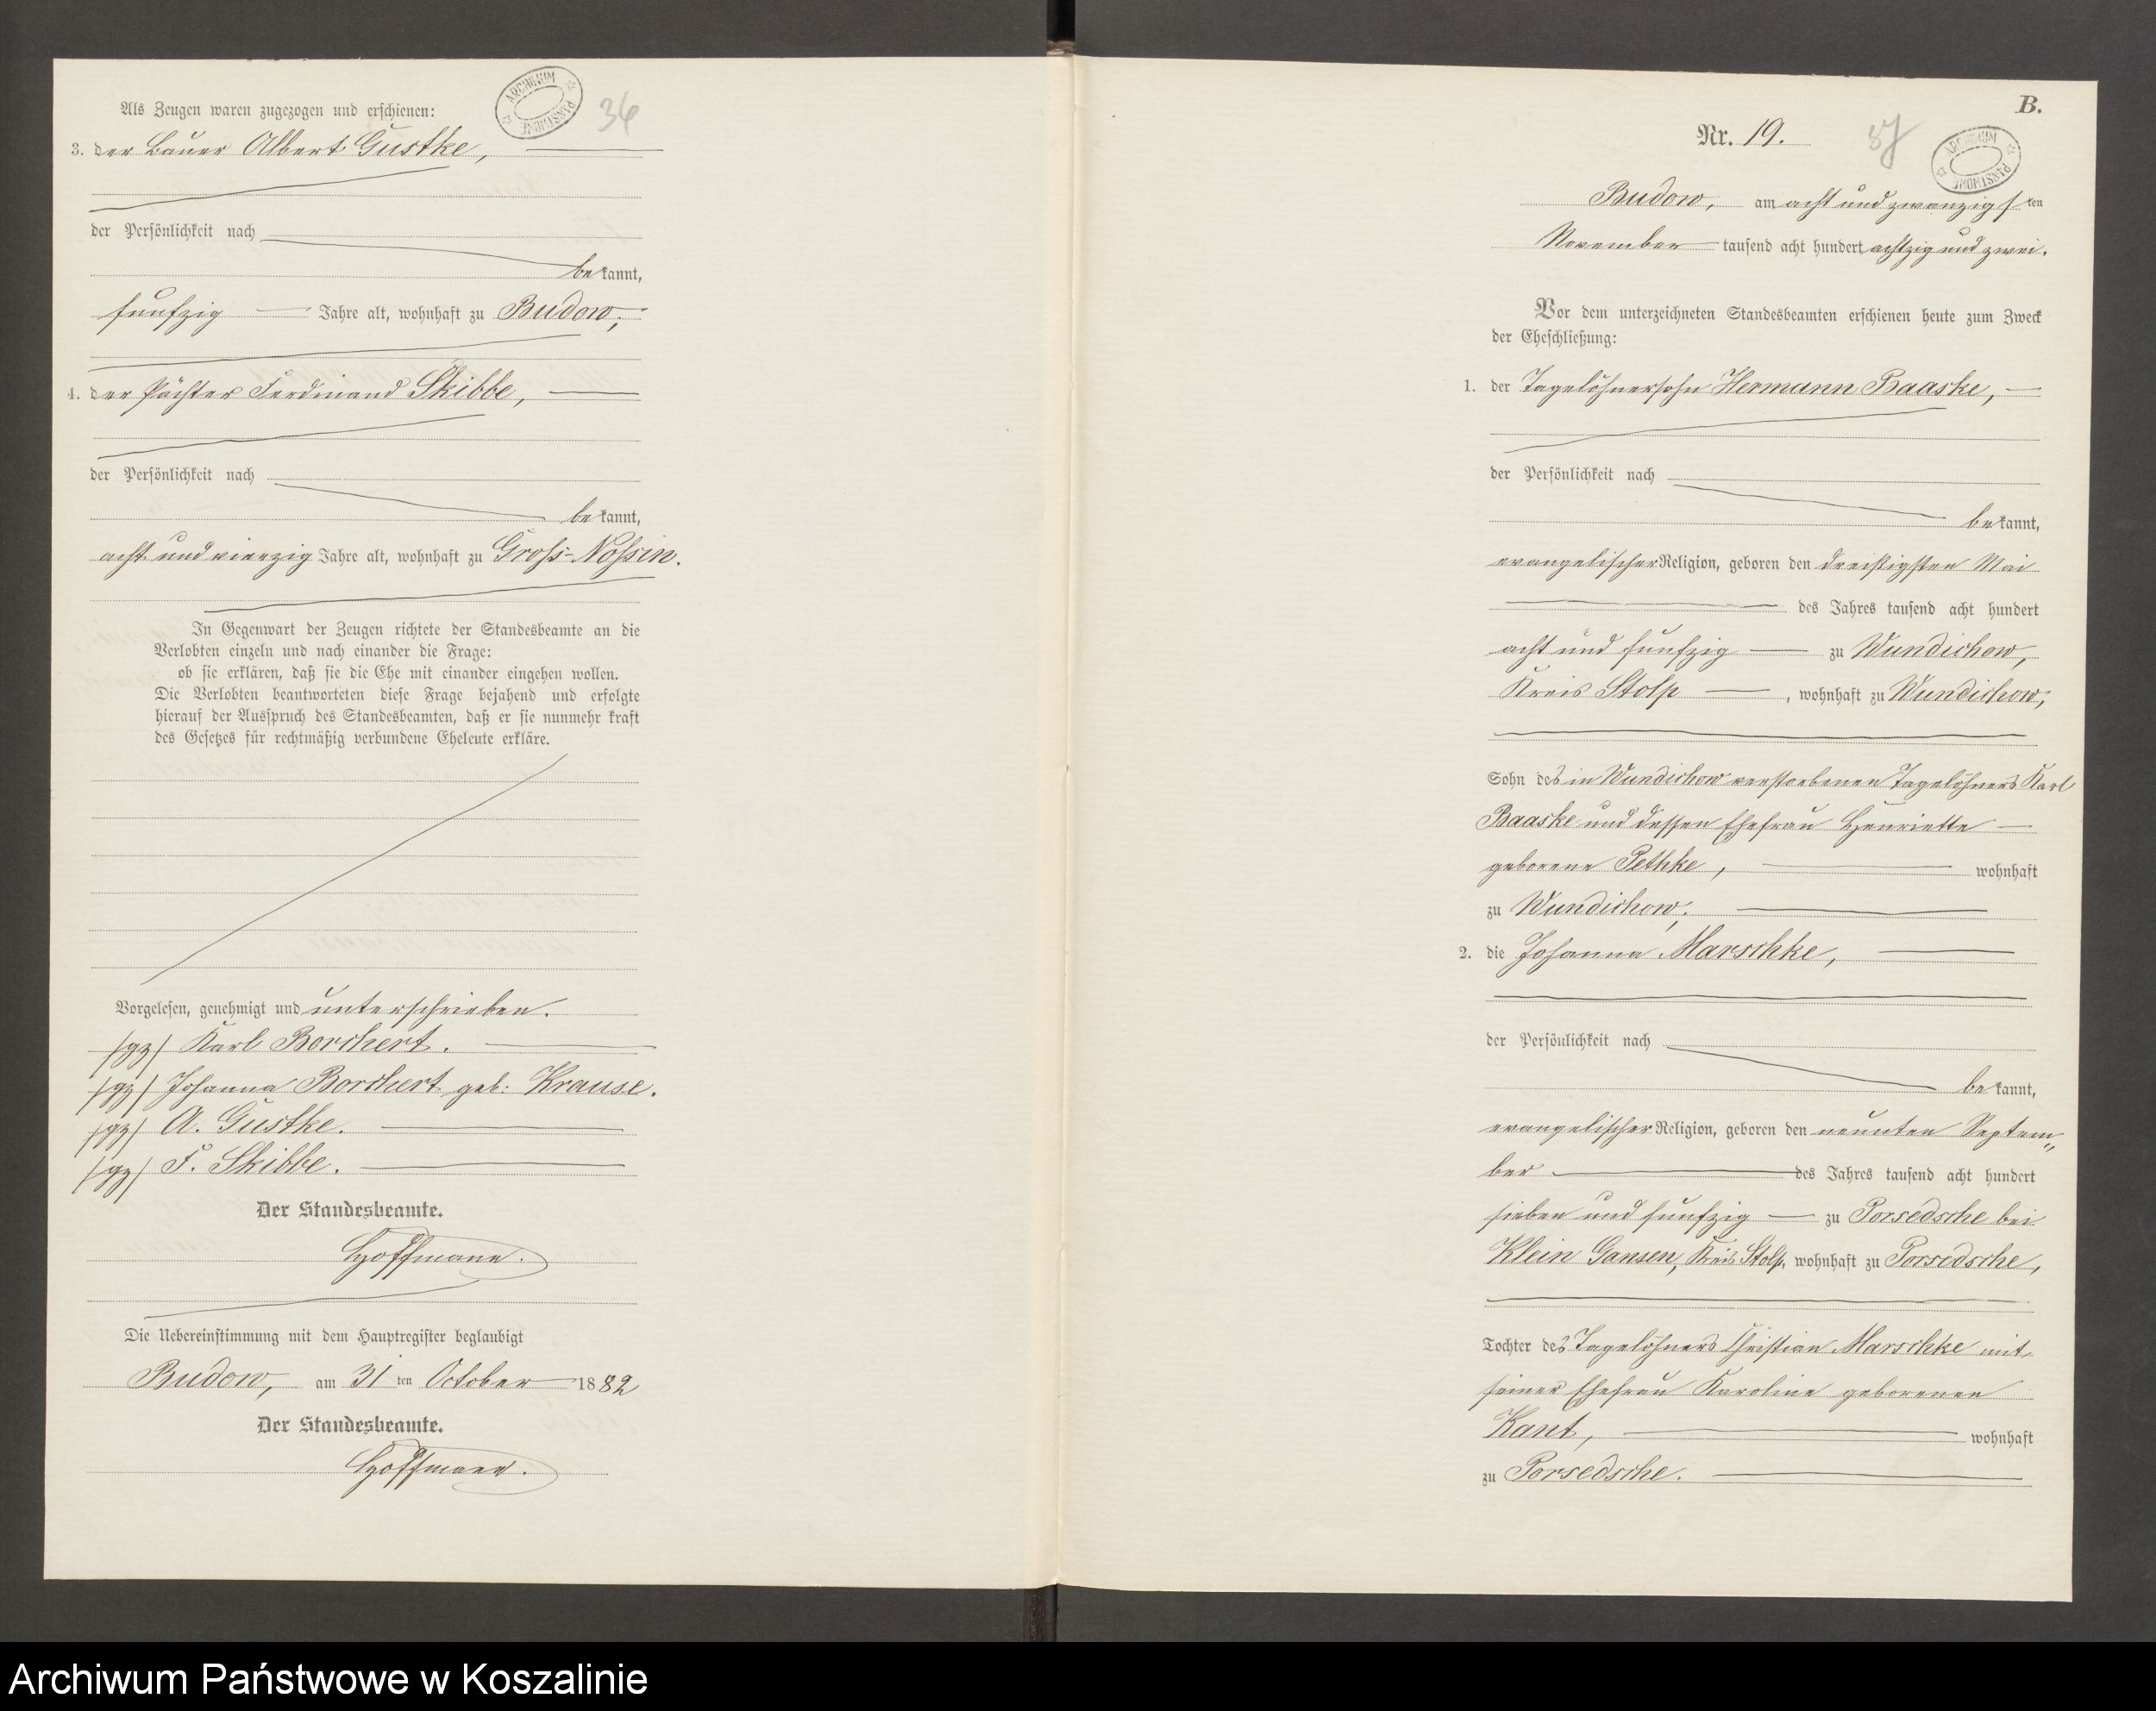 Als Zeugen waren zugezogen und erschienen:
36
ARCHIWUM PAŃSTWOWE
3. der Bauer Albert Gustke,
der Persönlichkeit nach
bekannt,
funfzig Jahre alt, wohnhaft zu Budow;
4. der Pächter Ferdinand Skibbe,
der Persönlichkeit nach
bekannt,
acht und vierzig Jahre alt, wohnhaft zu Gross-Nossin.
In Gegenwart der Zeugen richtete der Standesbeamte an die
Verlobten einzeln und nach einander die Frage:
ob sie erklären, daß sie die Ehe mit einander eingehen wollen.
Die Verlobten beantworteten diese Frage bejahend und erfolgte
hierauf der Ausspruch des Standesbeamten, daß er sie nunmehr kraft
des Gesetzes für rechtmäßig verbundene Eheleute erkläre.
Vorgelesen, genehmigt und unterschrieben.
/gz/ Karl Borchert.
/gz/ Johanna Borchert geb: Krause.
/gz/ A. Gustke.
/gz/ F. Skibbe.
Der Standesbeamte.
Hoffmann.
Die Uebereinstimmung mit dem Hauptregister beglaubigt
Budow, am 31 ten October 1882
Der Standesbeamte.
Hoffmann.
B.
Nr. 19.
37
ARCHIWUM PAŃSTWOWE
Budow, am acht und zwanzigsten
November tausend acht hundert achtzig und zwei.
Vor dem unterzeichneten Standesbeamten erschienen heute zum Zweck
der Eheschließung:
1. der Tagelöhnersohn Hermann Baaske,
der Persönlichkeit nach
bekannt,
evangelischer Religion, geboren den dreißigsten Mai
des Jahres tausend acht hundert
acht und funfzig zu Wundichow,
Kreis Stolp, wohnhaft zu Wundichow,
Sohn des in Wundichow verstorbenen Tagelöhners Karl
Baaske und dessen Ehefrau Henriette
geborene Pethke, wohnhaft
zu Wundichow;
2. die Johanna Marschke,
der Persönlichkeit nach
bekannt,
evangelischer Religion, geboren den neunten Septem„
ber des Jahres tausend acht hundert
sieben und funfzig zu Porsedsche bei
Klein Gansen, Kreis Stolp, wohnhaft zu Porsedsche,
Tochter des Tagelöhners Christian Marschke mit
seiner Ehefrau Karoline geborenen
Kant, wohnhaft
zu Porsedsche.
Archiwum Państwowe w Koszalinie